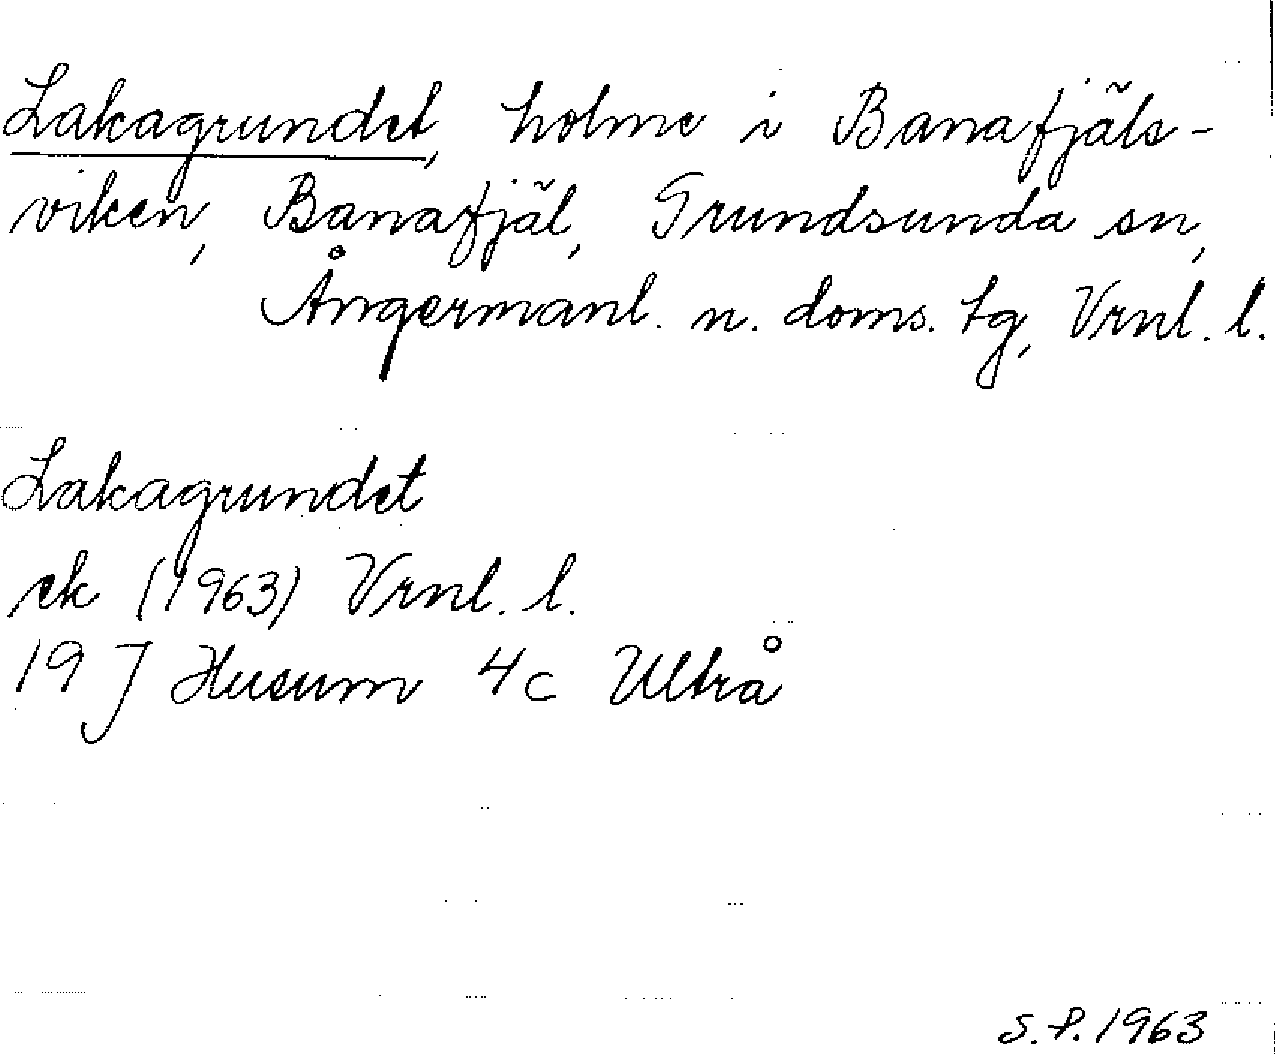 Lakagrundet, holme i Banafjäls-
viken, Banafjäl, Grundsunda sn,
Ångermanl. n. doms. tg, Vrnl. l.
Lakagrundet
ek (1963) Vrnl. l.
19 J Husum 4c Ultrå
S.P. 1963